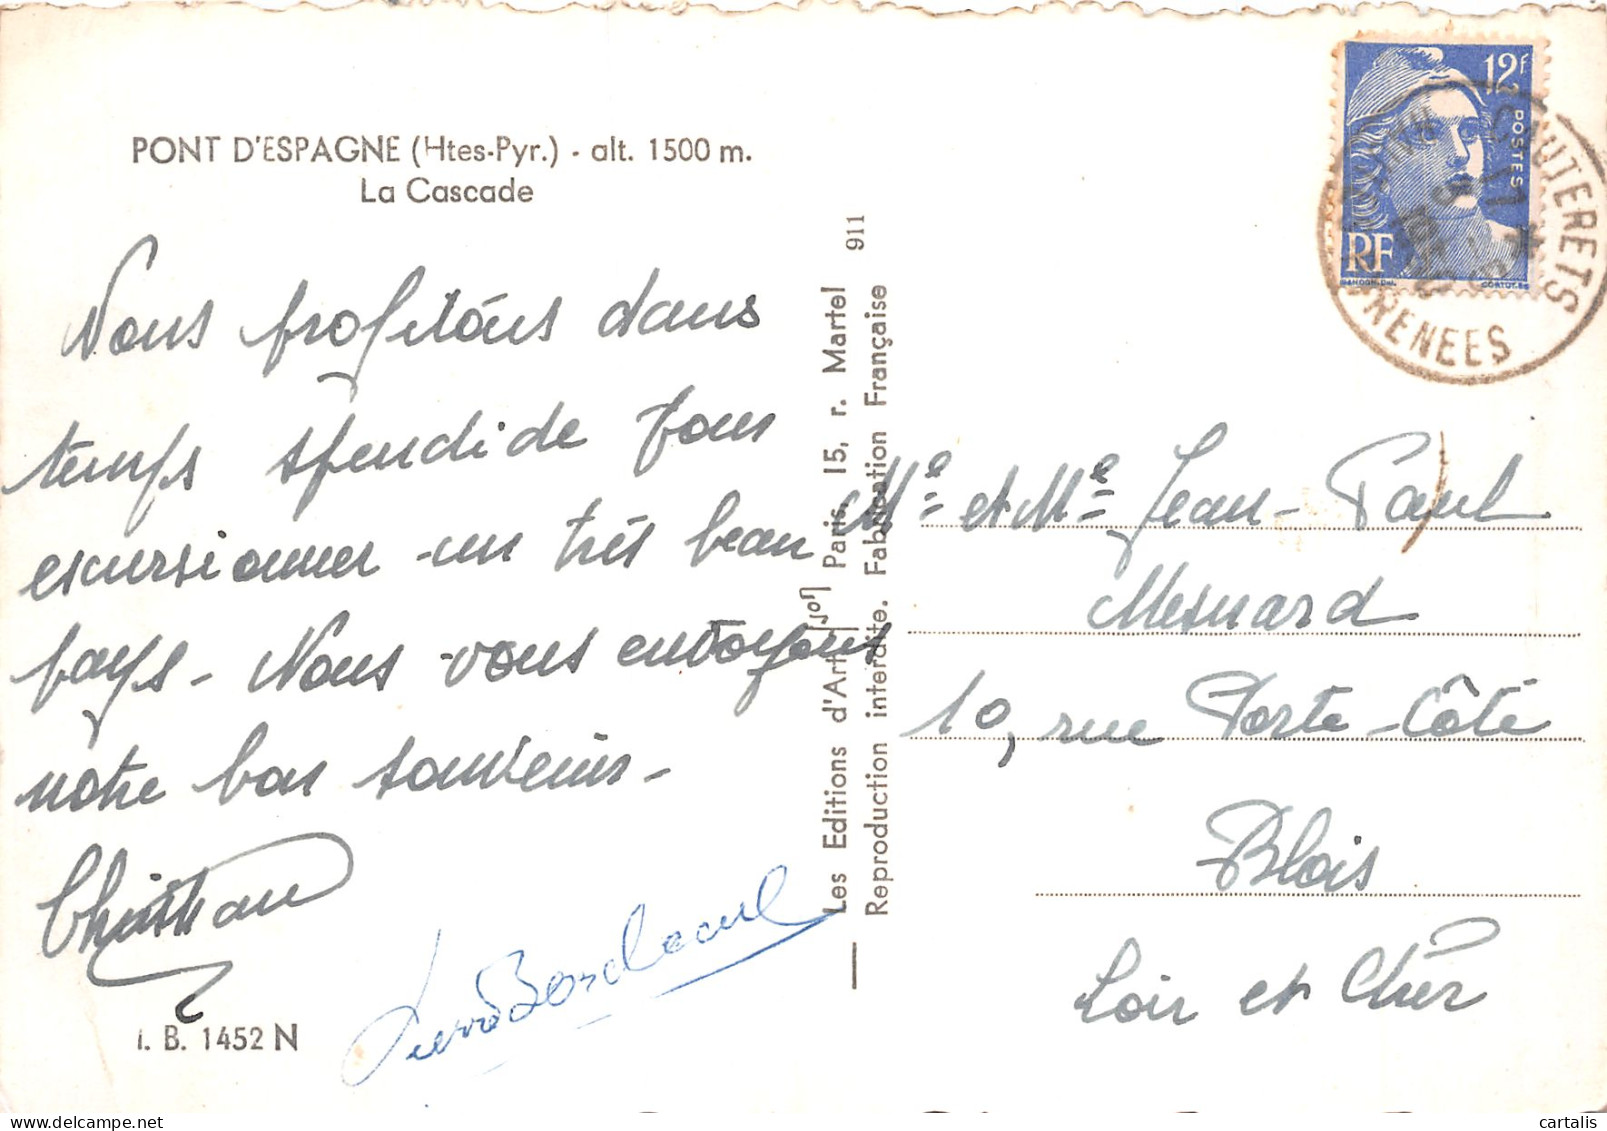 PONT D'ESPAGNE (Htes-Pyr.) - alt. 1500 m.
La Cascade
Nous profitons dans
temps splendide pour
excursionner un très beau
pays - Nous vous envoyons
notre bon souvenir -
Christian
Pierre
I. B. 1452 N
Les Editions d'Art Yvon Paris, 15, r. Martel 911
Reproduction interdite. Fabrication Française
12F
POSTES
RF
GANDON. DEL.
CORTOT. SC
CAUTERETS
PYRENEES
Me et Me Jean-Paul
Mesnard
10, rue Porte-Côté
Blois
Loir et Cher
cartalis